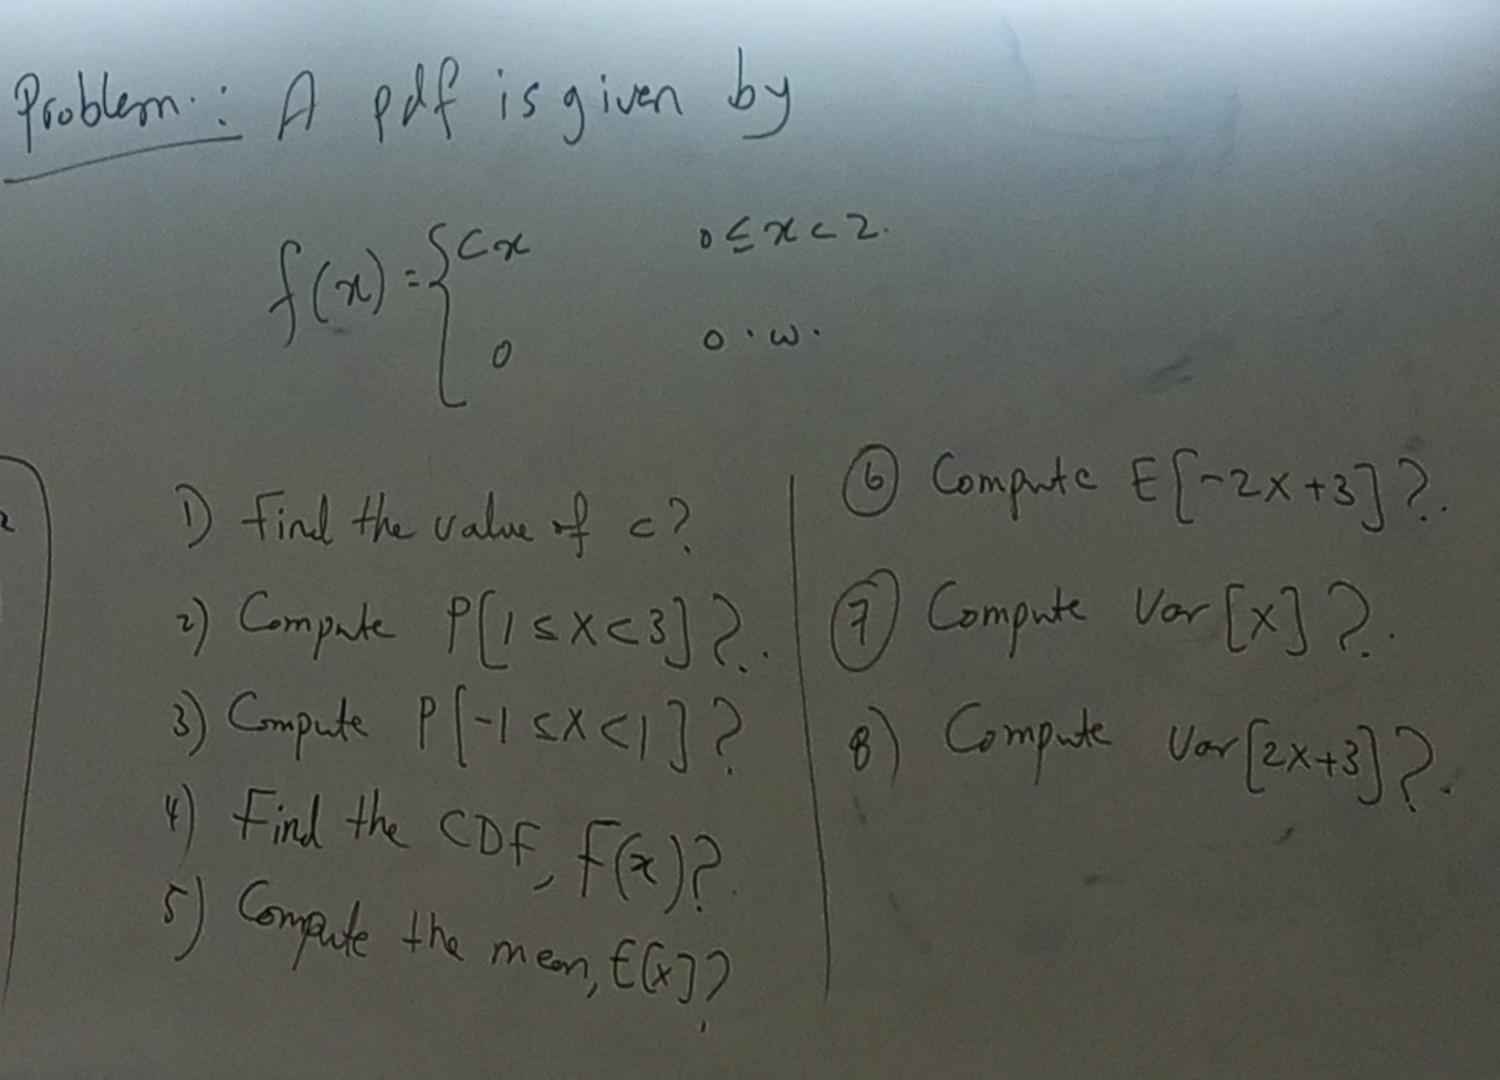 Problem: A pdf is given by
f(x) = { cx 0 ≤ x < 2.
0 o.w.
1) Find the value of c?
2) Compute P[1 ≤ X < 3]?.
3) Compute P[-1 ≤ X < 1]?
4) Find the CDF, F(x)?.
5) Compute the mean, E[X]?
6 Compute E[-2X+3]?.
7 Compute Var[X]?.
8) Compute Var[2X+3]?.
2